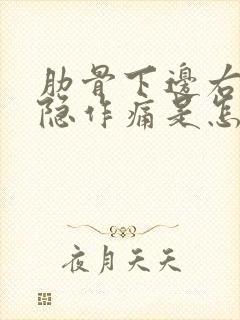 肋骨下邊右
隐作痛是怎
夜月天天